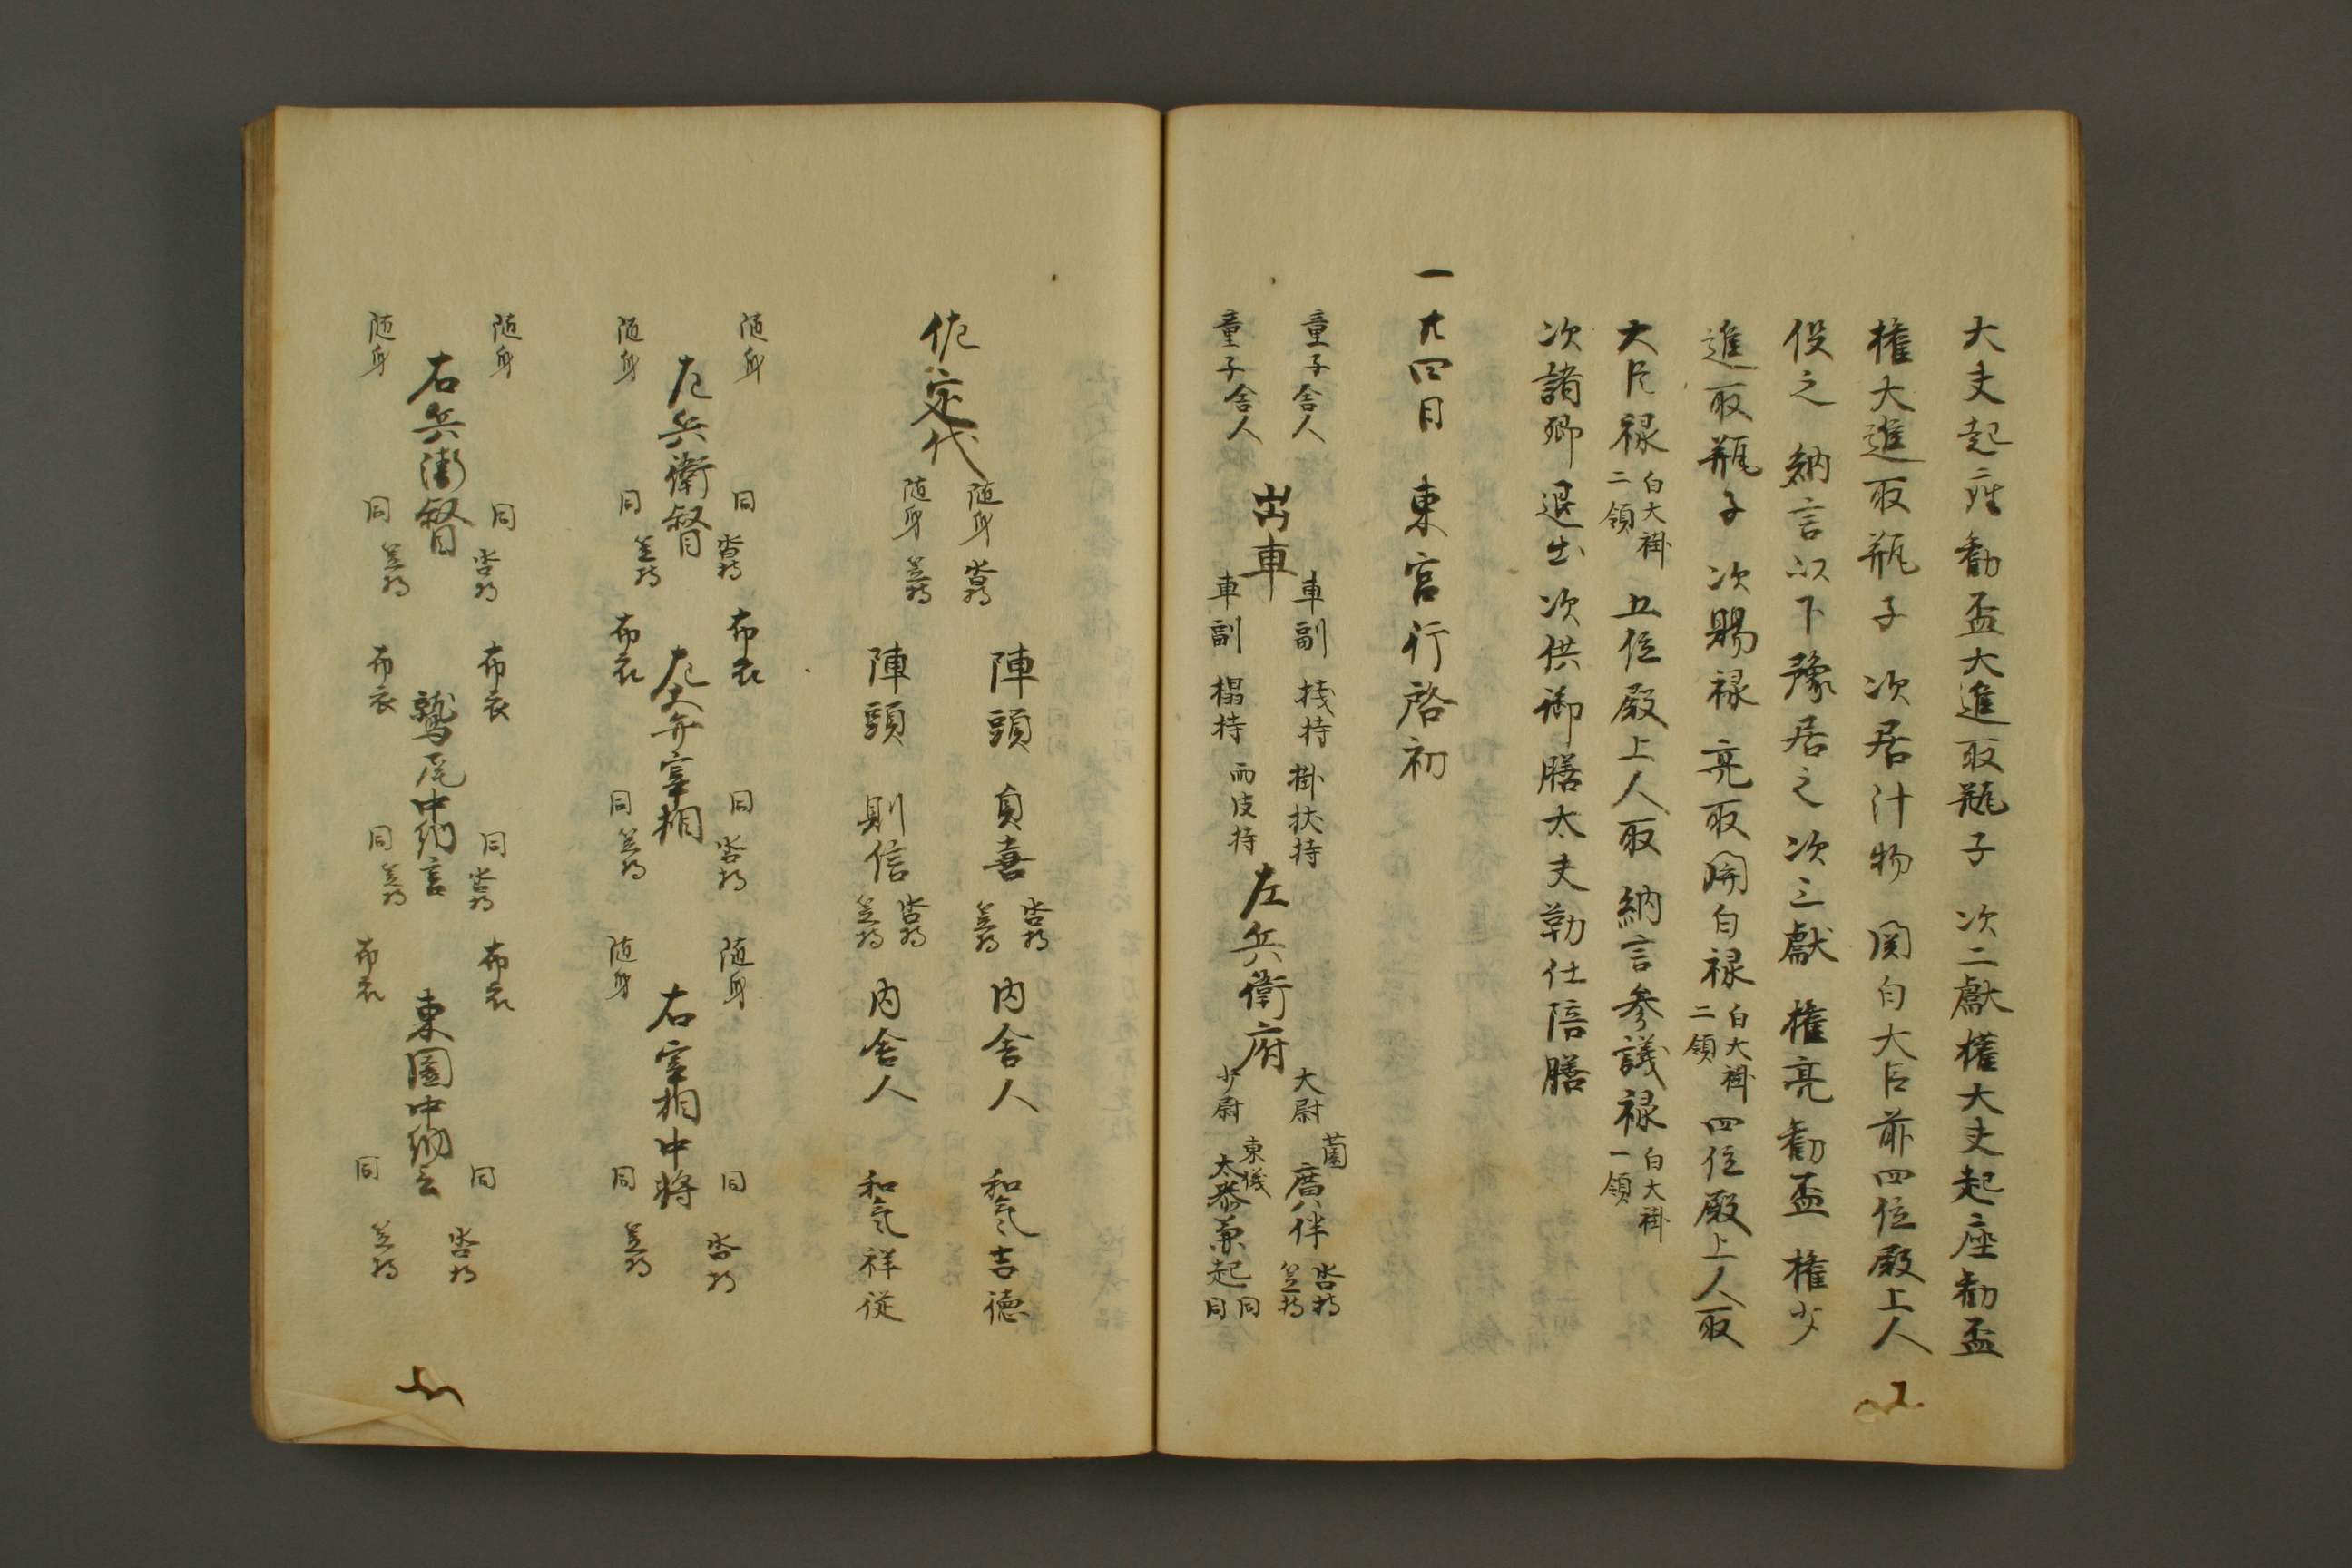 大夫起座勧盃大進取瓶子次二献権大夫起座勧盃
権大進取瓶子次居汁物関白大臣前四位殿上人
役之納言以下豫居之次三献権亮勧盃権少
進取瓶子次賜禄亮取関白禄白大褂二領四位殿上人取
大臣禄白大褂二領五位殿上人取納言参議禄白大褂一領
次諸卿退出次供御膳大夫勤仕陪膳
一廿四日東宮行啓初
童子舎人 車副 桟持 掛扶持 大尉 薗廣伴 沓持 笠持
出車 左兵衛府
童子舎人 車副 榻持 雨皮持 少尉 東儀 太秦兼起 同 同
陣頭 員喜 沓持 笠持 内舎人 和気吉徳
佐 代 随身 沓持 随身 笠持
陣頭 則信 沓持 笠持 内舎人 和気祥従
随身 同 沓持 布衣 同 沓持 随身 同 沓持
左兵衛督 左大弁宰相 右宰相中将
随身 同 笠持 布衣 同 笠持 随身 同 笠持
随身 同 沓持 布衣 同 沓持 布衣 同 沓持
右兵衛督 鷲尾中納言 東園中納言
随身 同 笠持 布衣 同 笠持 布衣 同 笠持